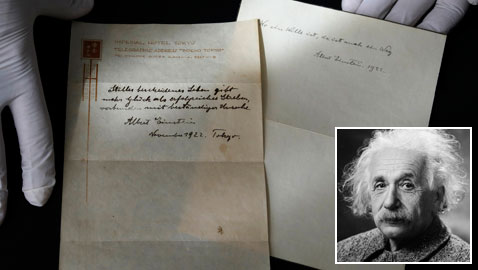 IMPERIAL HOTEL TOKYO
Stilles bescheidenes Leben gibt
mehr Glück als erfolgreiches Streben,
verbunden mit beständiger Unruhe.
Albert Einstein
November 1922. Tokyo.
Wo ein Wille ist, da ist auch ein Weg
Albert Einstein. 1922.